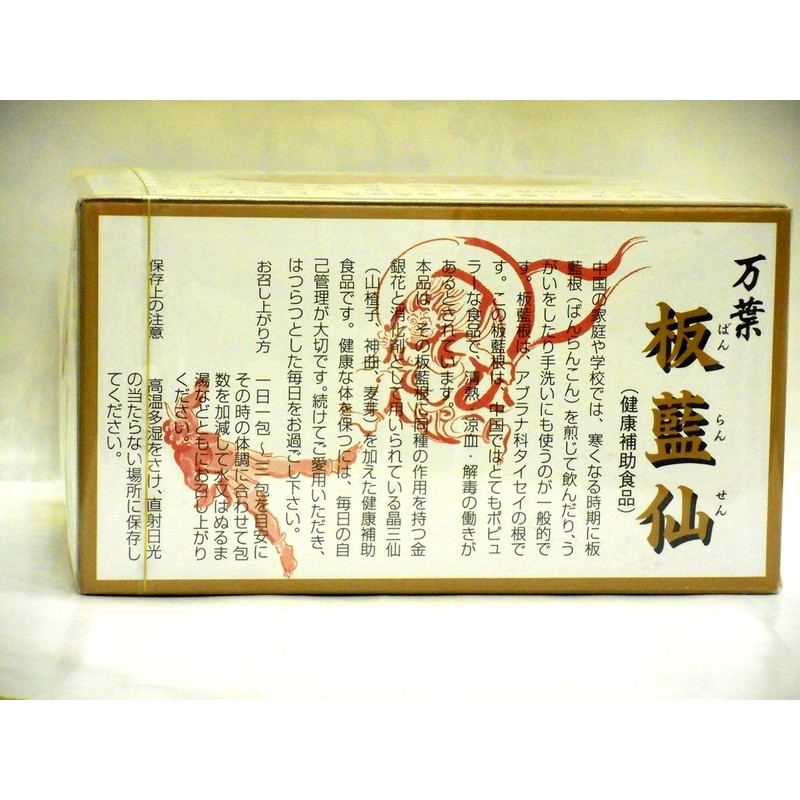 万葉
板藍仙
ばん らん せん
(健康補助食品)
中国の家庭や学校では、寒くなる時期に板
藍根(ばんらんこん)を煎じて飲んだり、う
がいをしたり手洗いにも使うのが一般的で
す。板藍根は、アブラナ科タイセイの根で
す。この板藍根は、中国ではとてもポピュ
ラーな食品で、清熱・涼血・解毒の働きが
あるとされています。
本品は、その板藍根に同種の作用を持つ金
銀花と消化剤として用いられている晶三仙
(山楂子、神曲、麦芽)を加えた健康補助
食品です。健康な体を保つには、毎日の自
己管理が大切です。続けてご愛用いただき、
はつらつとした毎日をお過ごし下さい。
お召し上がり方
一日一包〜三包を目安に
その時の体調に合わせて包
数を加減して水又はぬるま
湯などともにお召し上がり
ください。
保存上の注意
高温多湿をさけ、直射日光
の当たらない場所に保存し
てください。